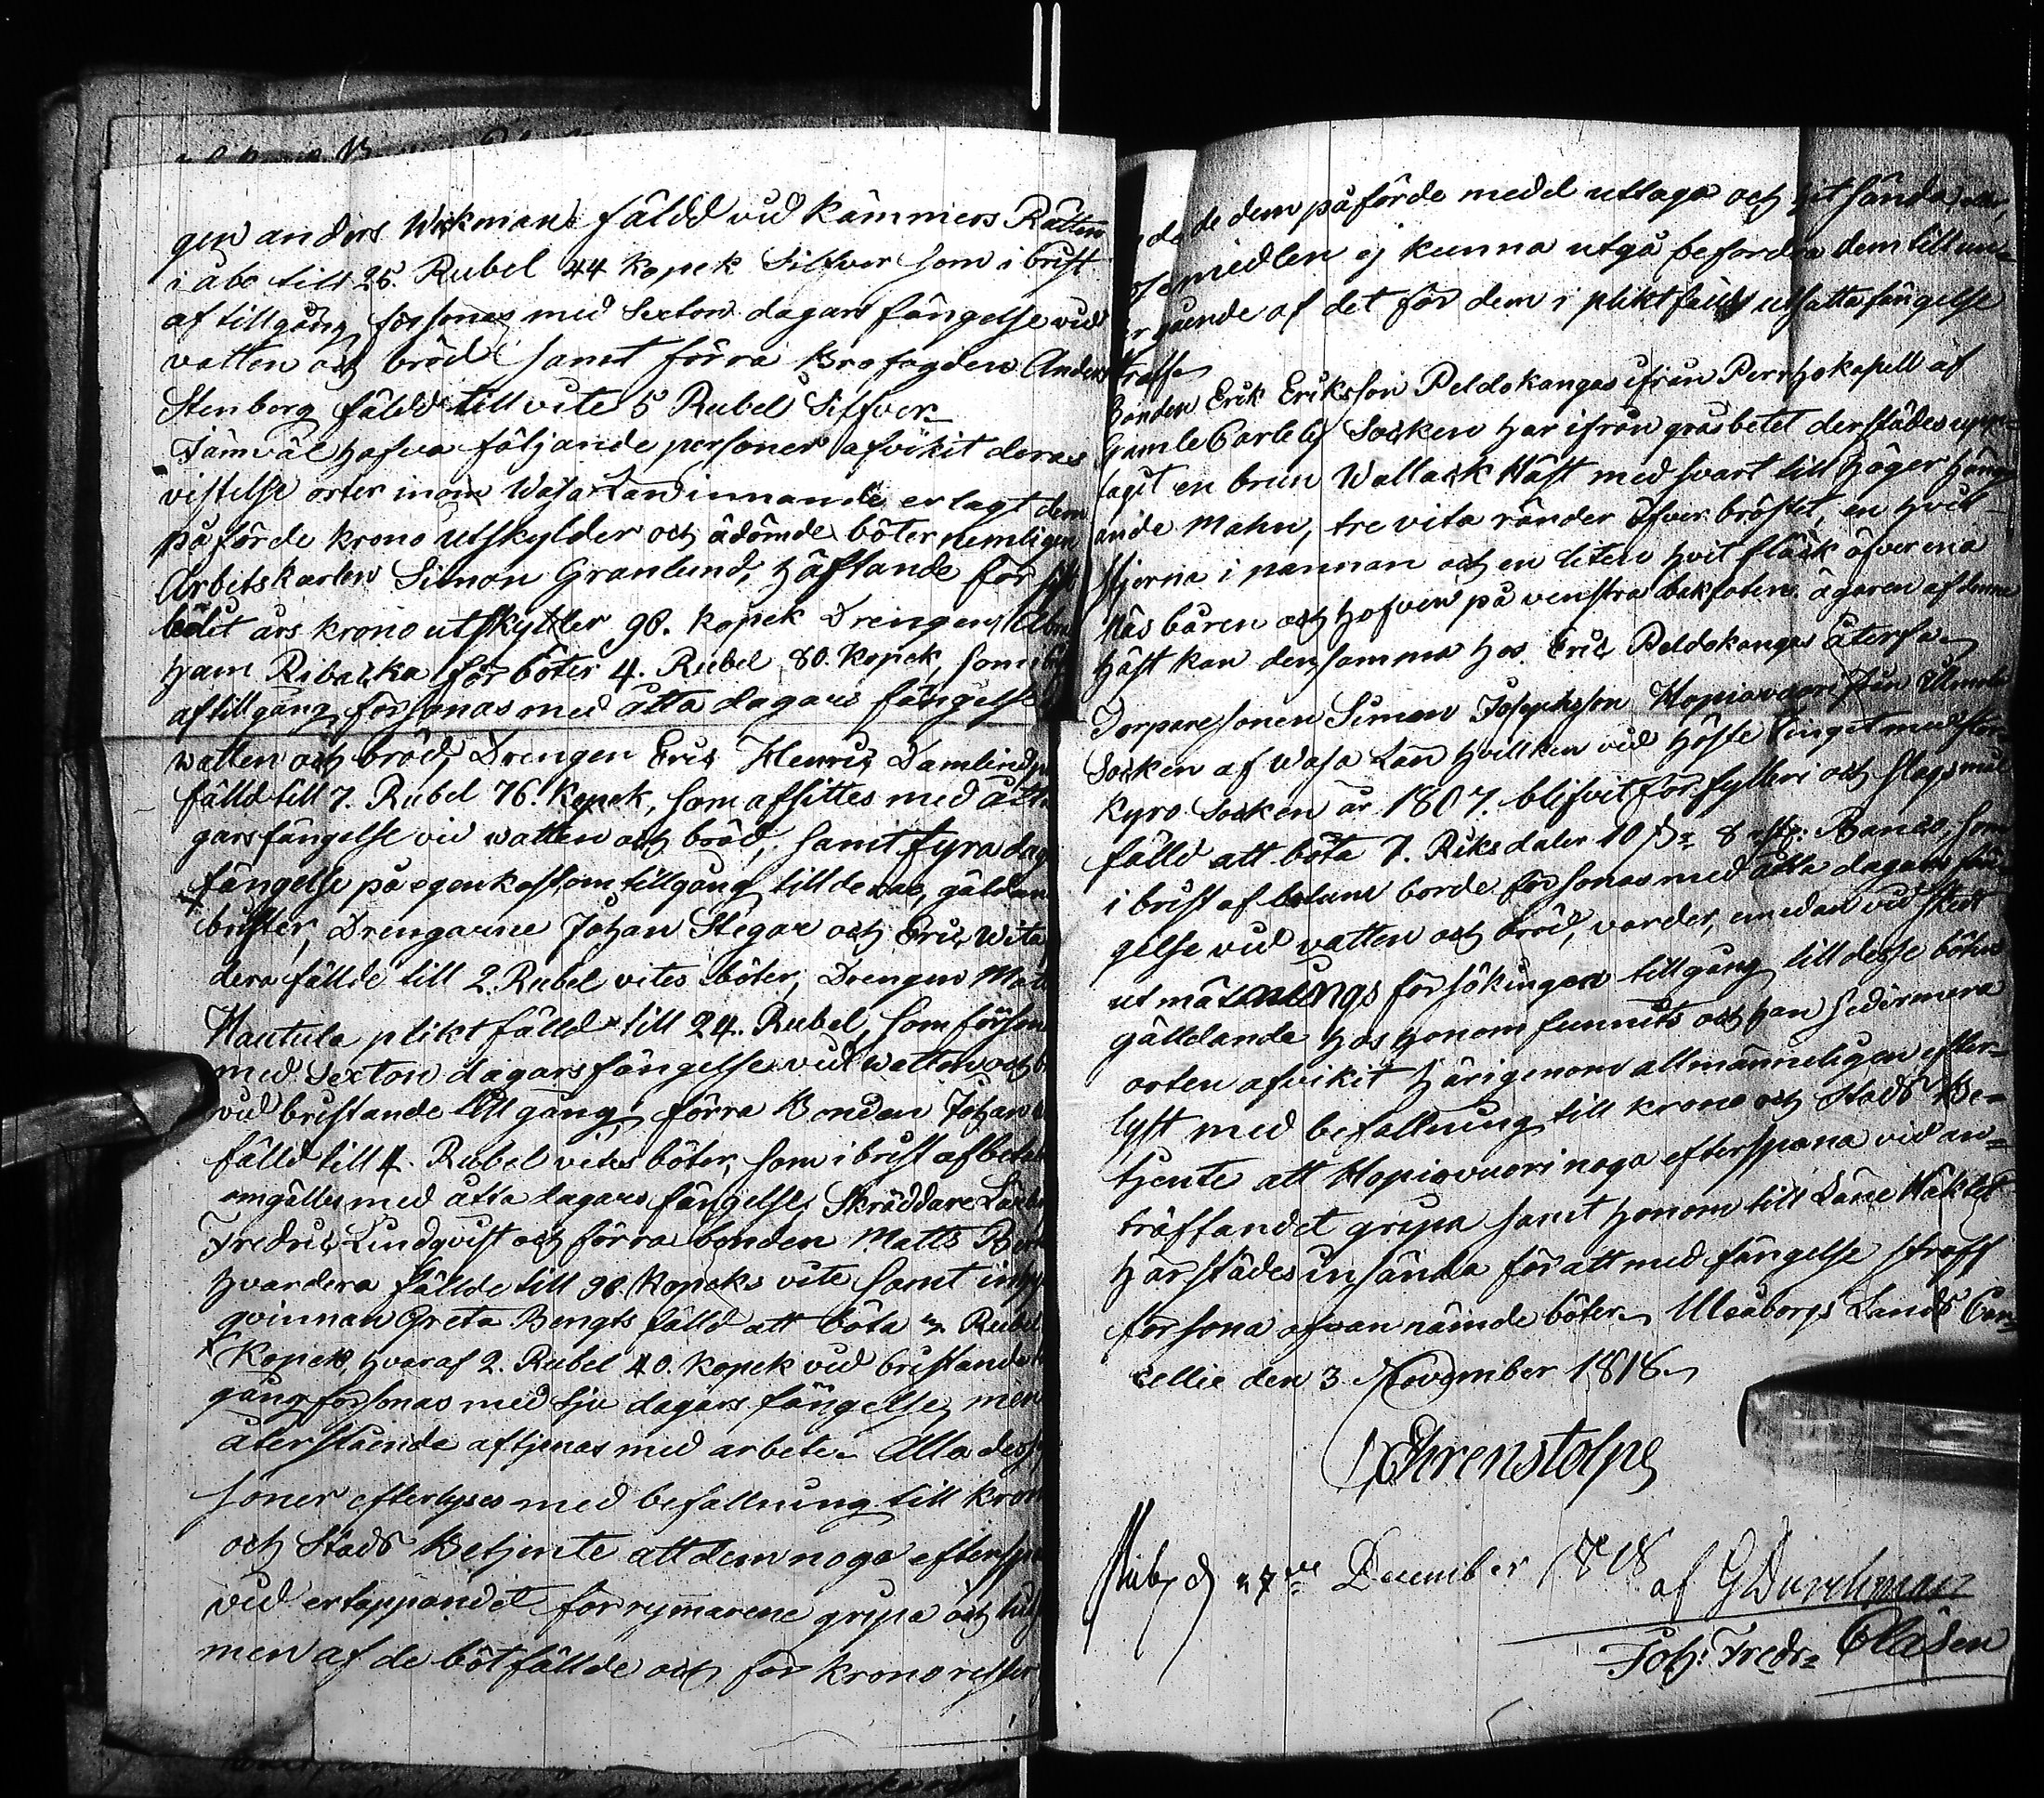 gen anders Wikman fäldd vid Kämmers Rätten
i åbo till 25. Rubel 44 Kopek Silfver som i brist
af tillgång försonas med Sexton dagars fängelse vid
vatten och bröd samt förra Brofogden Anders
Stenberg fäldd till vite 5 Rubel Silfver
Jämväl hafva följande personer afvikit deras
vistelse orter inom Wasa Län innan de erlagt dem
påförde krono utskylder och ådömde böter nemligen
Arbetskarlen Simon Granlund, häftande för
års krono utskylder 90. Kopek Drengen Abra
ham Ribacka för böter 4. Rubel 80. Kopek, som i
af tillgång försonas med åtta dagars fängelse
watten och bröd, Drengen Eric Henric Damlin
fälld till 7. Rubel 76. Kopek, som afsittes med åtta
gars fängelse vid watten och bröd, samt fyra dag
fängelse på egen kost om tillgång till deras gäldan
brister, Drengarne Johan Stegar och Eric Wita
dera fällde till 2. Rubel vites böter, Drengen Matts
Hautula plikt fälld till 24. Rubel, som förson
med Sexton dagars fängelse vid watten och b
vid bristande till gång, förra Bonden Johan
fälld till 4. Rubel vites böter, som i brist af betal
omgälles med åtta dagars fängelse, Skräddare Lär
Fredric Lindqvist och förra bonden Matts
hvardera fällde till 90. Kopeks vite samt inhy
qvinnan Greta Bengts fälld att böta Rubel
Kopek, hvaraf 2. Rubel 40. Kopek vid bristande
gång försonas med sju dagars fängelse, men
återstående aftjenas med arbete. Alla dess
soner efterlyses med befallning till kron
och Stads Betjente att dem noga efterspa
vid ertappandet förrymarene gripa och
men af de bötfällde och för krono rester
de dem påförde medel uttaga och hit sända,
medlen ej kunna utgå befordra dem till un
gående af det för dem i pliktfälld utsatta fängelse
straff.
Bonden Erik Eriksson Peldokangas ifrån Perrho kapell af
Gamle Carleby Socken har ifrån gräsbetet derstädes upp
tagit en brun Wallack Häst med svart till höger häng
ande Mahn, tre vita ränder öfver bröstet, en hvit
stjerna i pannan och en liten hvit fläck öfver ena
Näsbåren och hofven på venstra bakfoten ägaren af denne
häst kan densamma hos Eric Peldokangas återfå.
Torparesonen Simon Josephsson Hopiavuori från
Socken af Wasa Län hvilken vid höste tinget med Stor
kyro Socken år 1807. blifvit för fylleri och slagsmål
fälld att böta 7. Riksdaler 10 s 8 rst: Banco, som
i brist af betaln borde försonas med åtta dagars fän
gelse vid vatten och bröd, varder, emedan vid skedt
utmätnings försökningen tillgång till desse böters
gälldande hos honom funnits och han sedermera
orten afvikit härigenom allmänneligen efter-
lyst med befallning till krono och Stads Be-
tjente att Hopiavuori noga efterspana vid an-
träffandet gripa samt honom till Läne Häktet
härstädes insända för att med fängelse straff
försona ofvannämde böter. Uleåborgs Lands Can-
cellie den 3 November 1818.
Ehrenstolpe
d 27de December 1818 af G Durchman
Joh: Fredr: Claisen